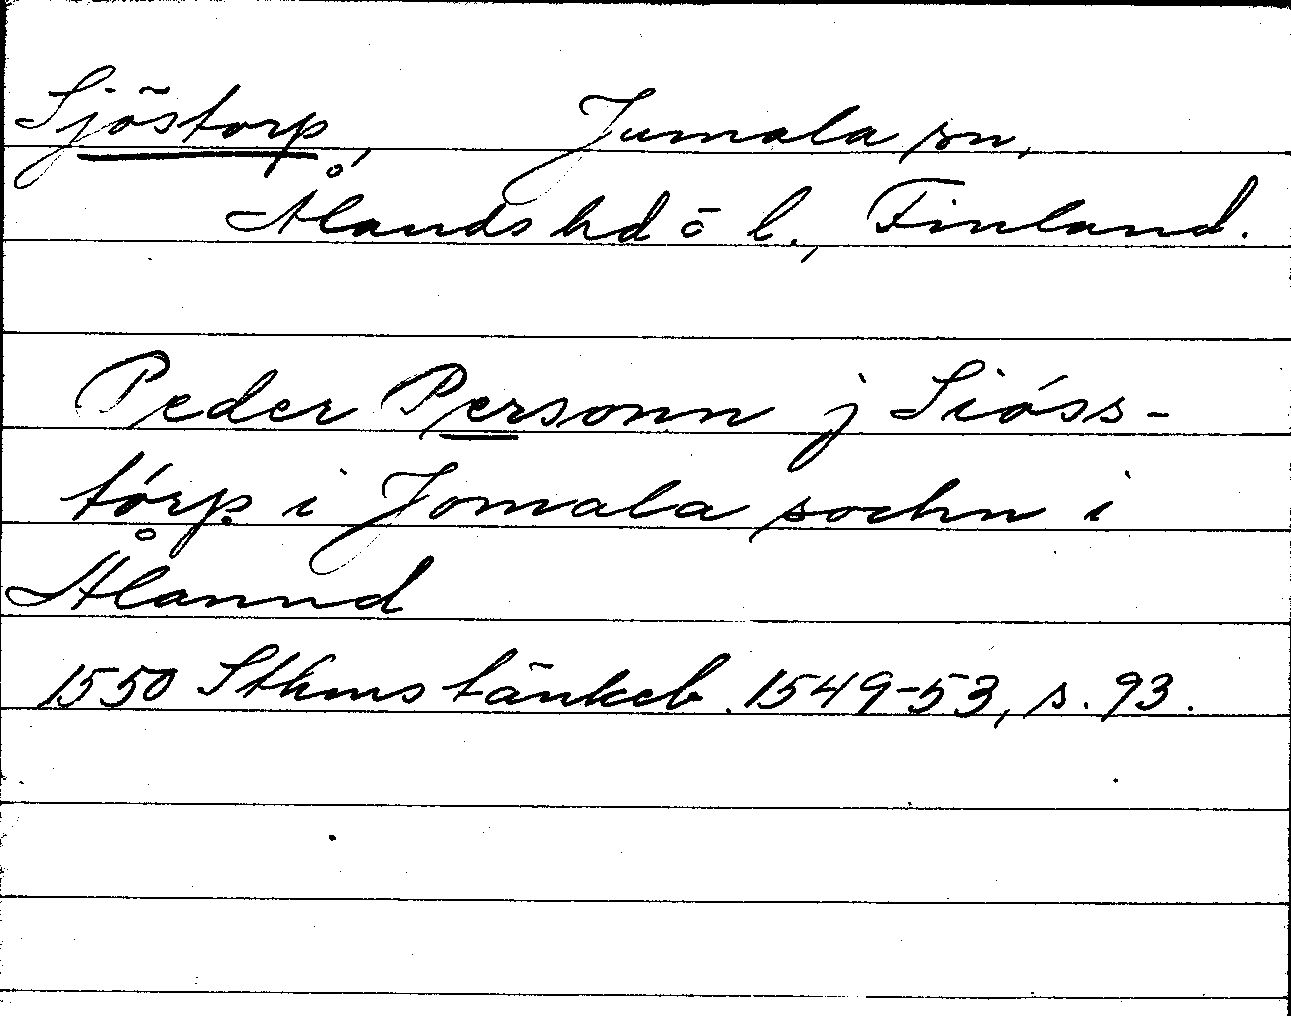 Sjöstorp, Jumala sn,
Ålands hd ö l., Finland.
Peder Personn j Sióss-
tórp i Jomala sochn i
Ålannd
1550 Sthms tänkeb. 1549-53, s. 93.